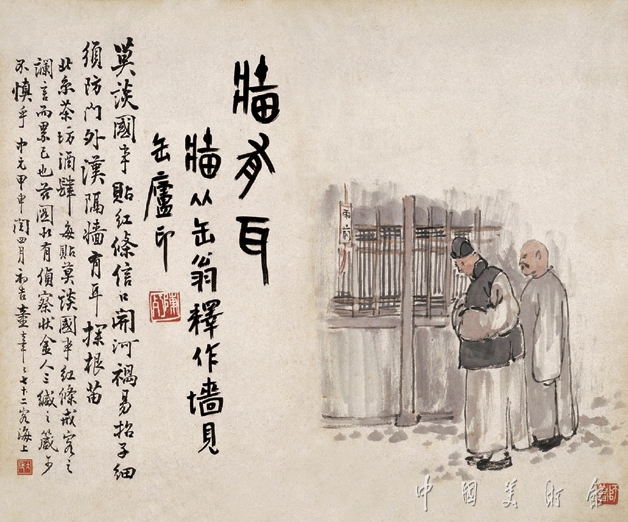 牆有耳
牆从缶翁釋作墻見
缶廬印
莫談國事貼紅條信口開河禍易招子細
須防門外漢隔墻有耳探根苗
北京茶坊酒肆每貼莫談國事紅條戒客之
讕言而累己也 有偵察狀金人三緘之箴可
不慎乎 中元甲申閏四月初吉 七十二客海上
雨前
中國美術館